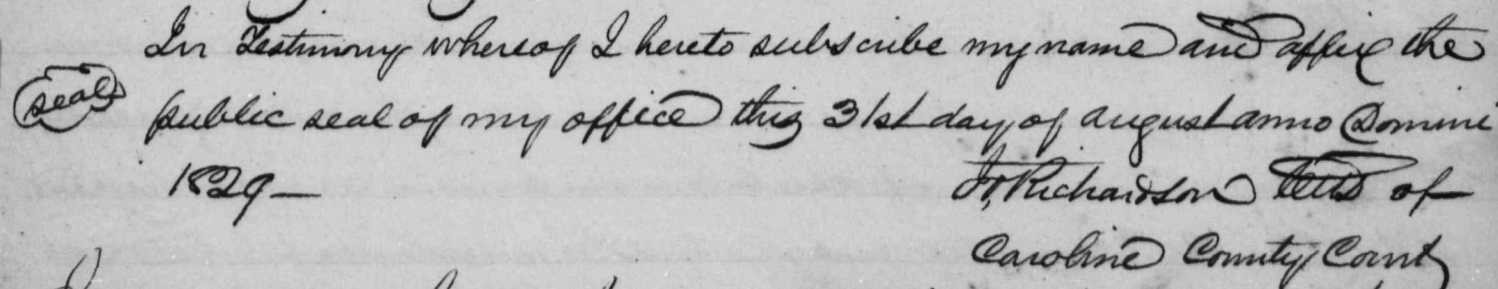 In Testimony whereof I hereto subscribe my name and affix the
seal
public seal of my office this 31st day of august anno Domini
1829 —
Jo, Richardson Clk of
Caroline County Court